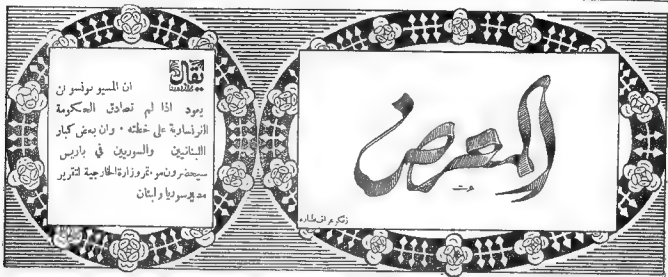 المعرض
يقال
ان المسيو بونسو لن
يعود اذا لم تصادق الحكومة
الفرنساوية على خطته . وان بعض كبار
اللبنانيين والسوريين في باريس
سيحضرون مؤتمر وزارة الخارجية لتقرير
مصير سوريا ولبنان